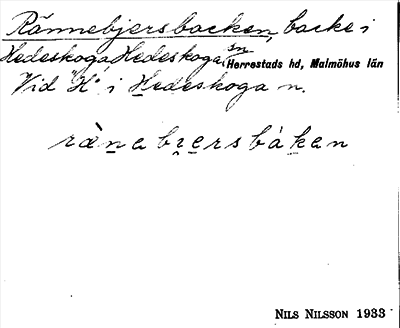 Rännebjersbacken, backe i
Hedeskoga, Hedeskoga sn
Herrestads hd, Malmöhus län
Vid "H" i Hedeskoga n.
rànabɪ̯ersbáken
NILS NILSSON 1933